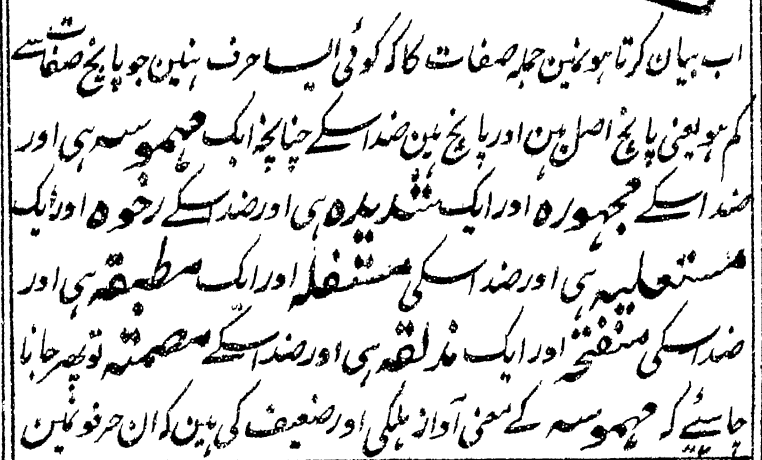 اب بیان کرتا ہو نمین جملہ صفات کا کہ کوئی ایسا حرف ہنین جو پانچ صفات سے
کم ہو یعنی پانچ اصل ہین اور پانچ ہین ضد اسکے چنانچہ ایک مہموسہ ہی اور
ضد اسکے مجہورہ اور ایک شدیدہ ہی اور ضد اسکے رخوہ اور ایک
مستعلیہ ہی اور ضد اسکی مستفلہ اور ایک مطبقہ ہی اور
ضد اسکی منفتحہ اور ایک مذلقہ ہی اور ضد اسکے مصمتہ تو پھر جاننا
چاہیئے کہ مہموسہ کے معنی آواز ہلکی اور ضعیف کی ہین کہ ان حرفو نمین